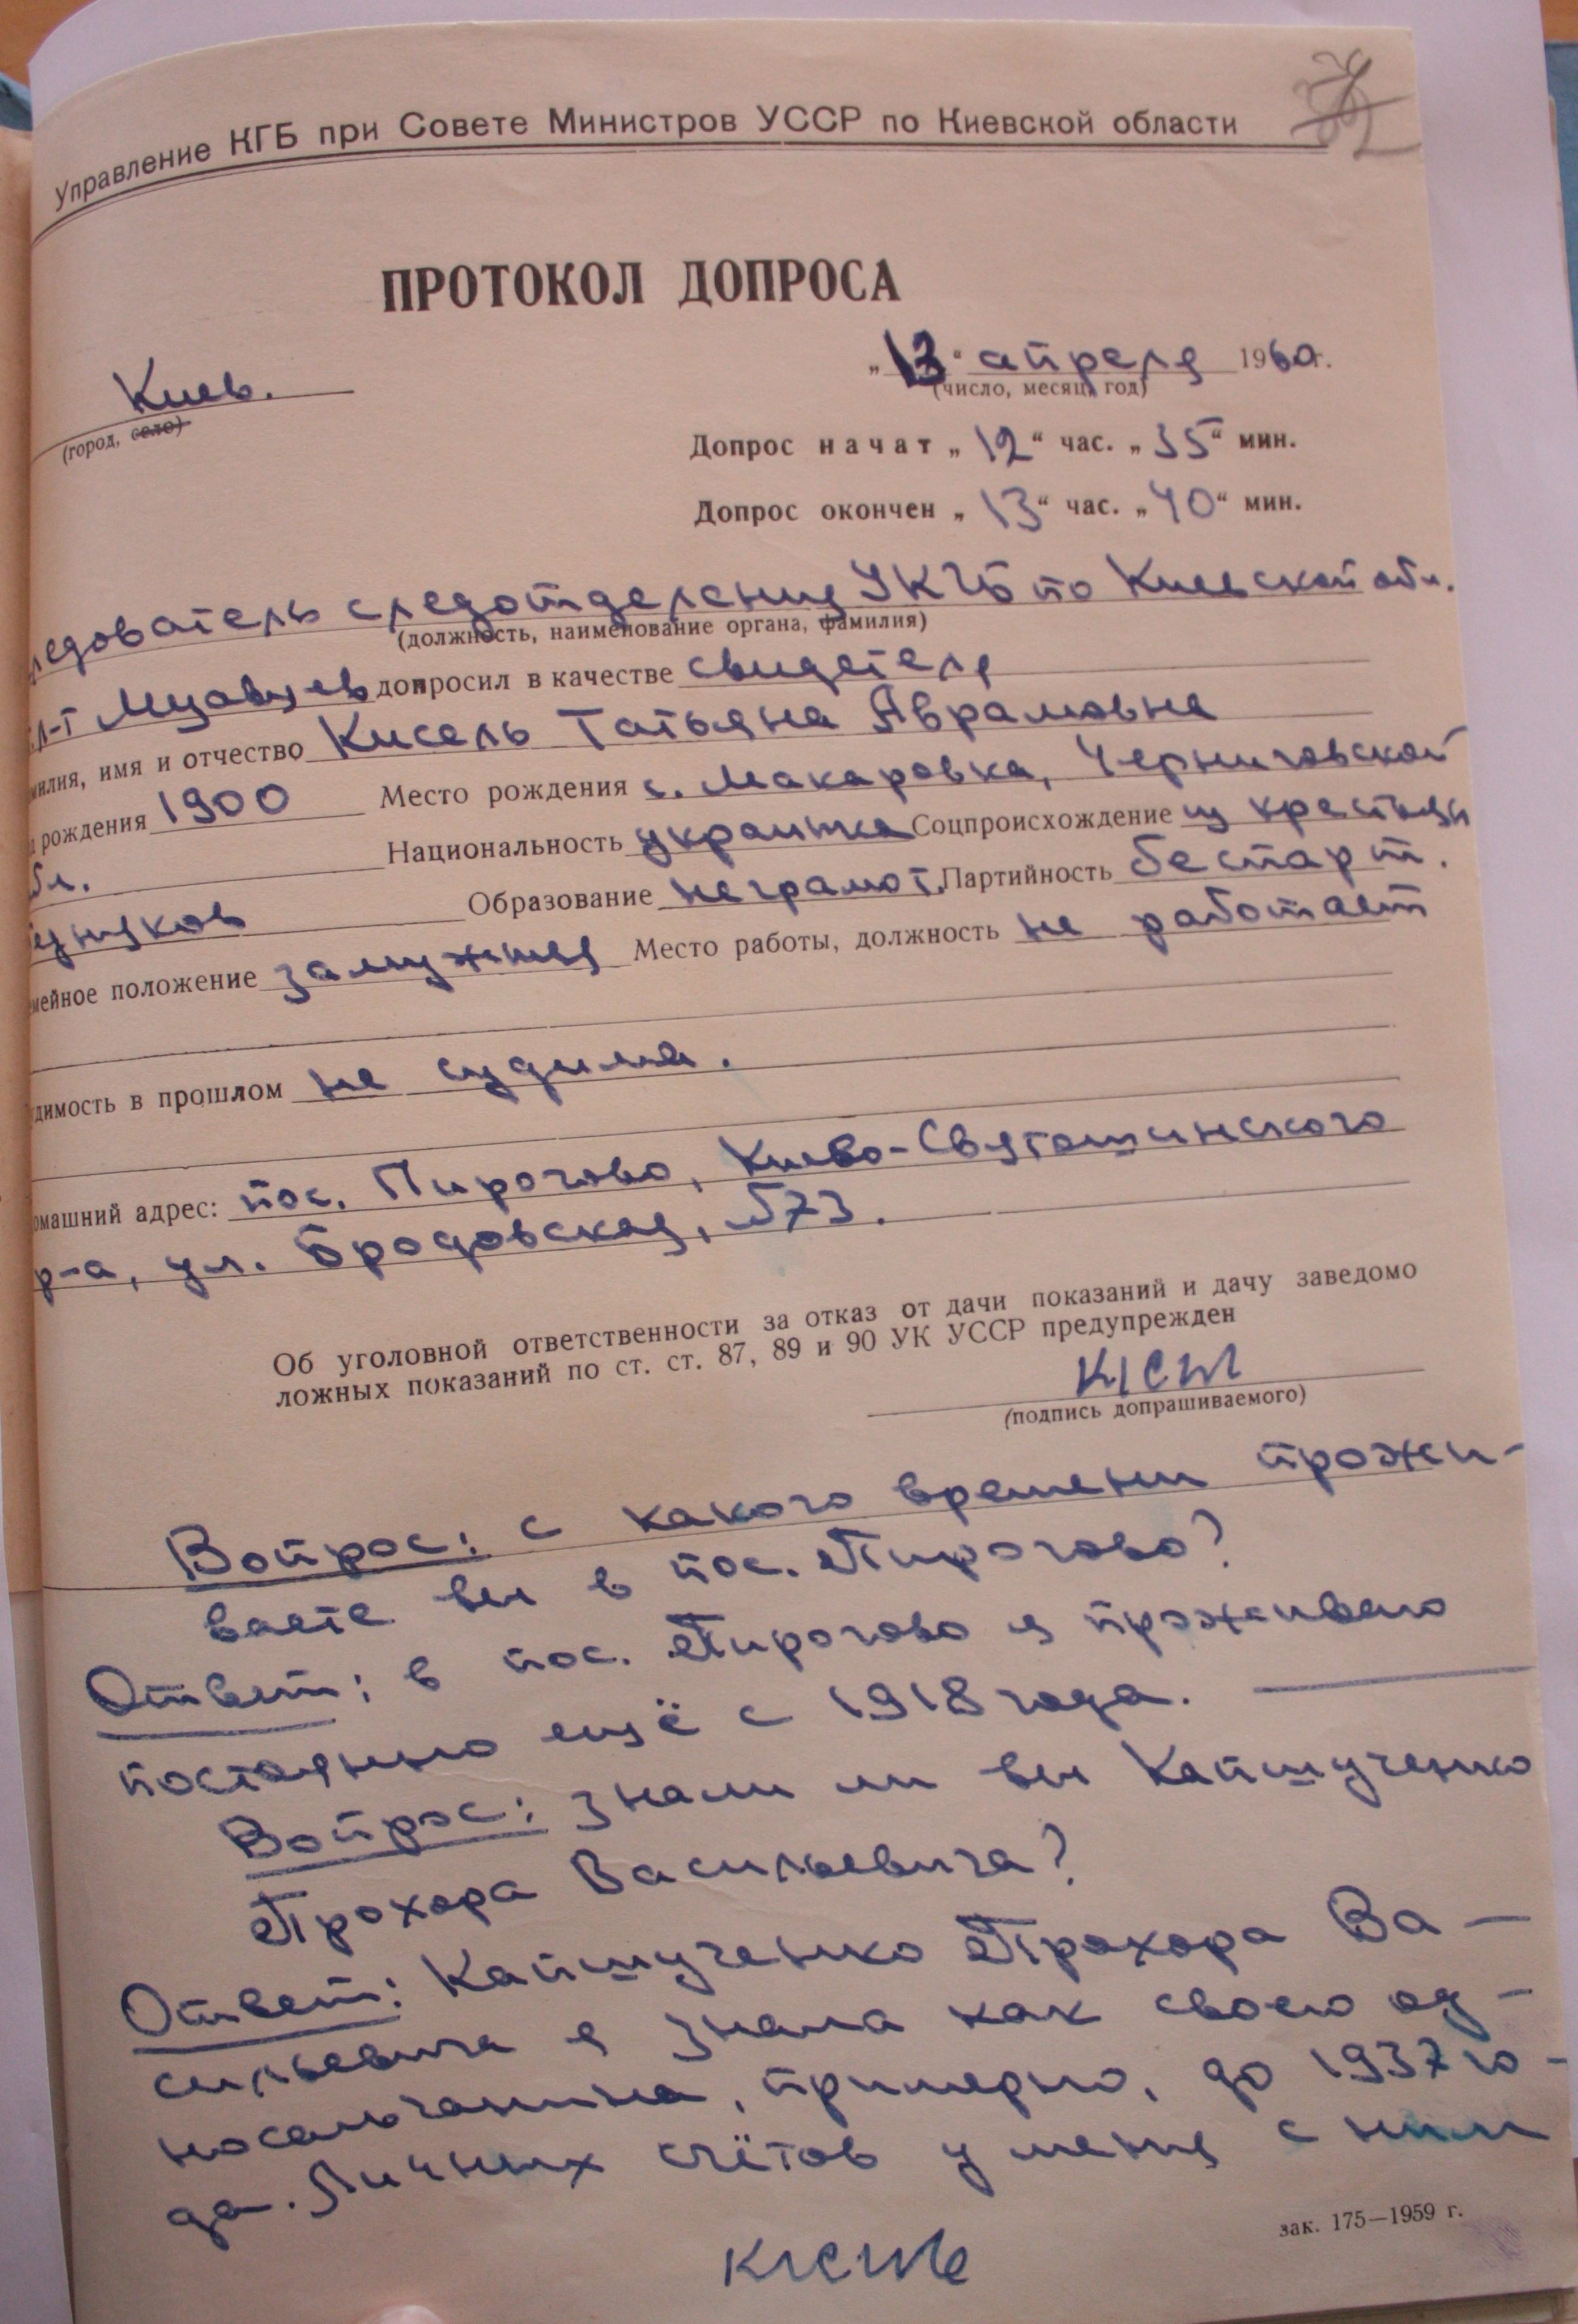 Управление КГБ при Совете Министров УССР по Киевской области
ПРОТОКОЛ ДОПРОСА
„13“ апреля 1960г.
(число, месяц, год)
Киев.
(город, село)
Допрос начат „12“ час. „35“ мин.
Допрос окончен „13“ час. „40“ мин.
ледователь следотделения УКГБ по Киевской обл.
(должность, наименование органа, фамилия)
л-т допросил в качестве свидетеля
милия, имя и отчество Кисель Татьяна Аврамовна
д рождения 1900 Место рождения с. Макаровка, Черниговской
бл. Национальность украинка Соцпроисхождение из крестьян
Образование неграмот. Партийность беспарт.
мейное положение замужняя Место работы, должность не работает
димость в прошлом не судима.
омашний адрес: пос. Пирогово, Киево-Святошинского
р-а, ул. Бродовская, №73.
Об уголовной ответственности за отказ от дачи показаний и дачу заведомо
ложных показаний по ст. ст. 87, 89 и 90 УК УССР предупрежден
(подпись допрашиваемого)
Вопрос: с какого времени прожи-
ваете вы в пос. Пирогово?
Ответ: в пос. Пирогово я проживаю
постоянно ещё с 1918 года.
Вопрос: знали ли вы Капшученко
Прохора Васильевича?
Ответ: Капшученко Прохора Ва-
сильевича я знала как своего од-
носельчанина, примерно, до 1937 го-
да. Личных счётов у меня с ним
зак. 175—1959 г.